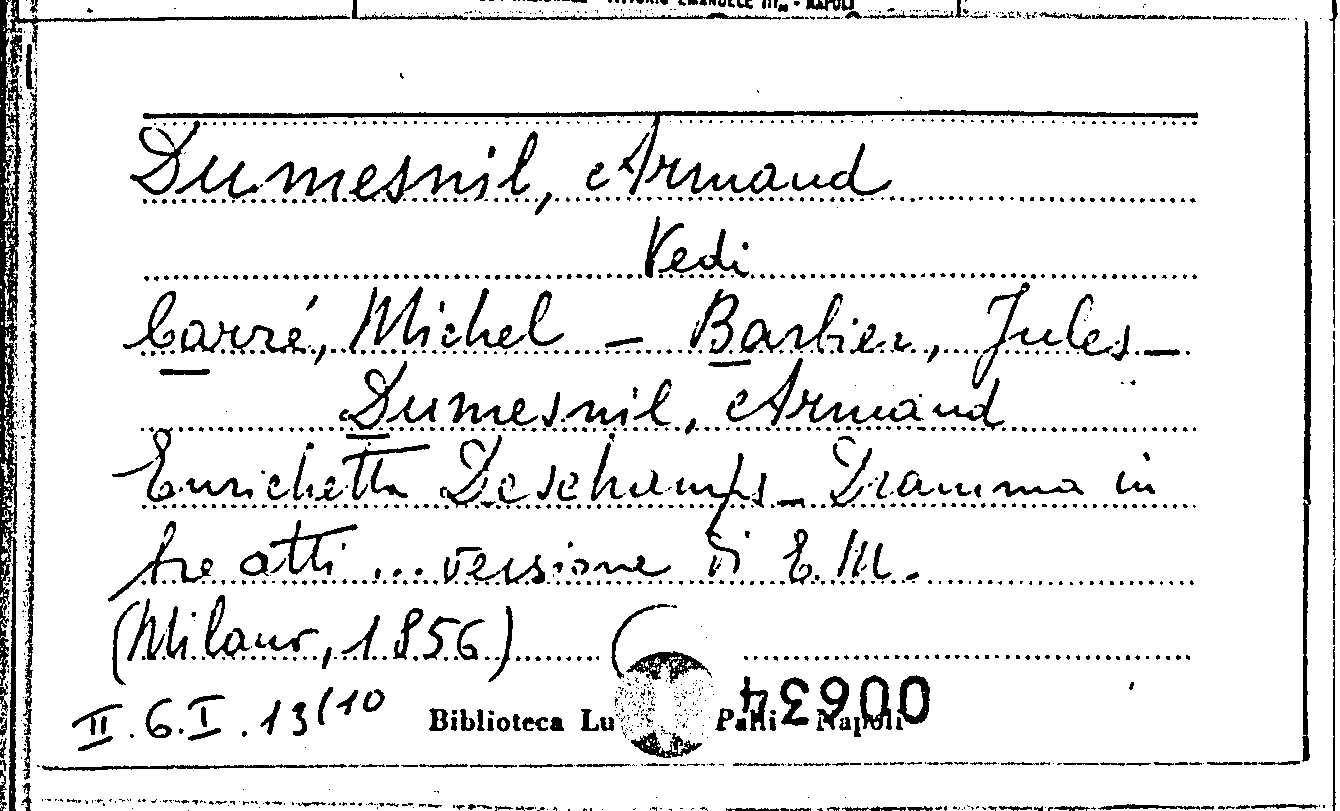 VITTORIO EMANUELE III - NAPOLI
Dumesnil, Armand
Vedi
Carré, Michel - Barbier, Jules -
Dumesnil, Armand
Enrichetta Deschamps - Dramma in
tre atti ... versione di E. M.
(Milano, 1856)
II. 6. I. 13(10
Biblioteca Lu Palli Napoli
000634